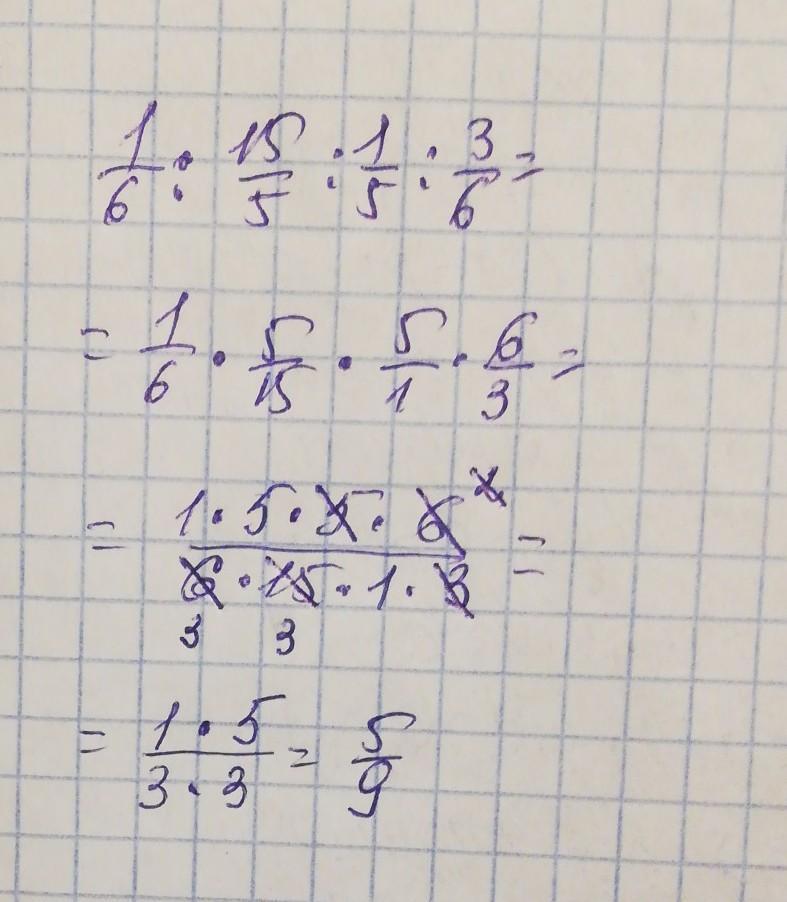 1/6 : 15/5 : 1/5 : 3/6 =
= 1/6 · 5/15 · 5/1 · 6/3 =
= 1 · 5 · 5 · 6 2 / 6 · 15 · 1 · 3 =
3 3
= 1 · 5 / 3 · 3 = 5/9